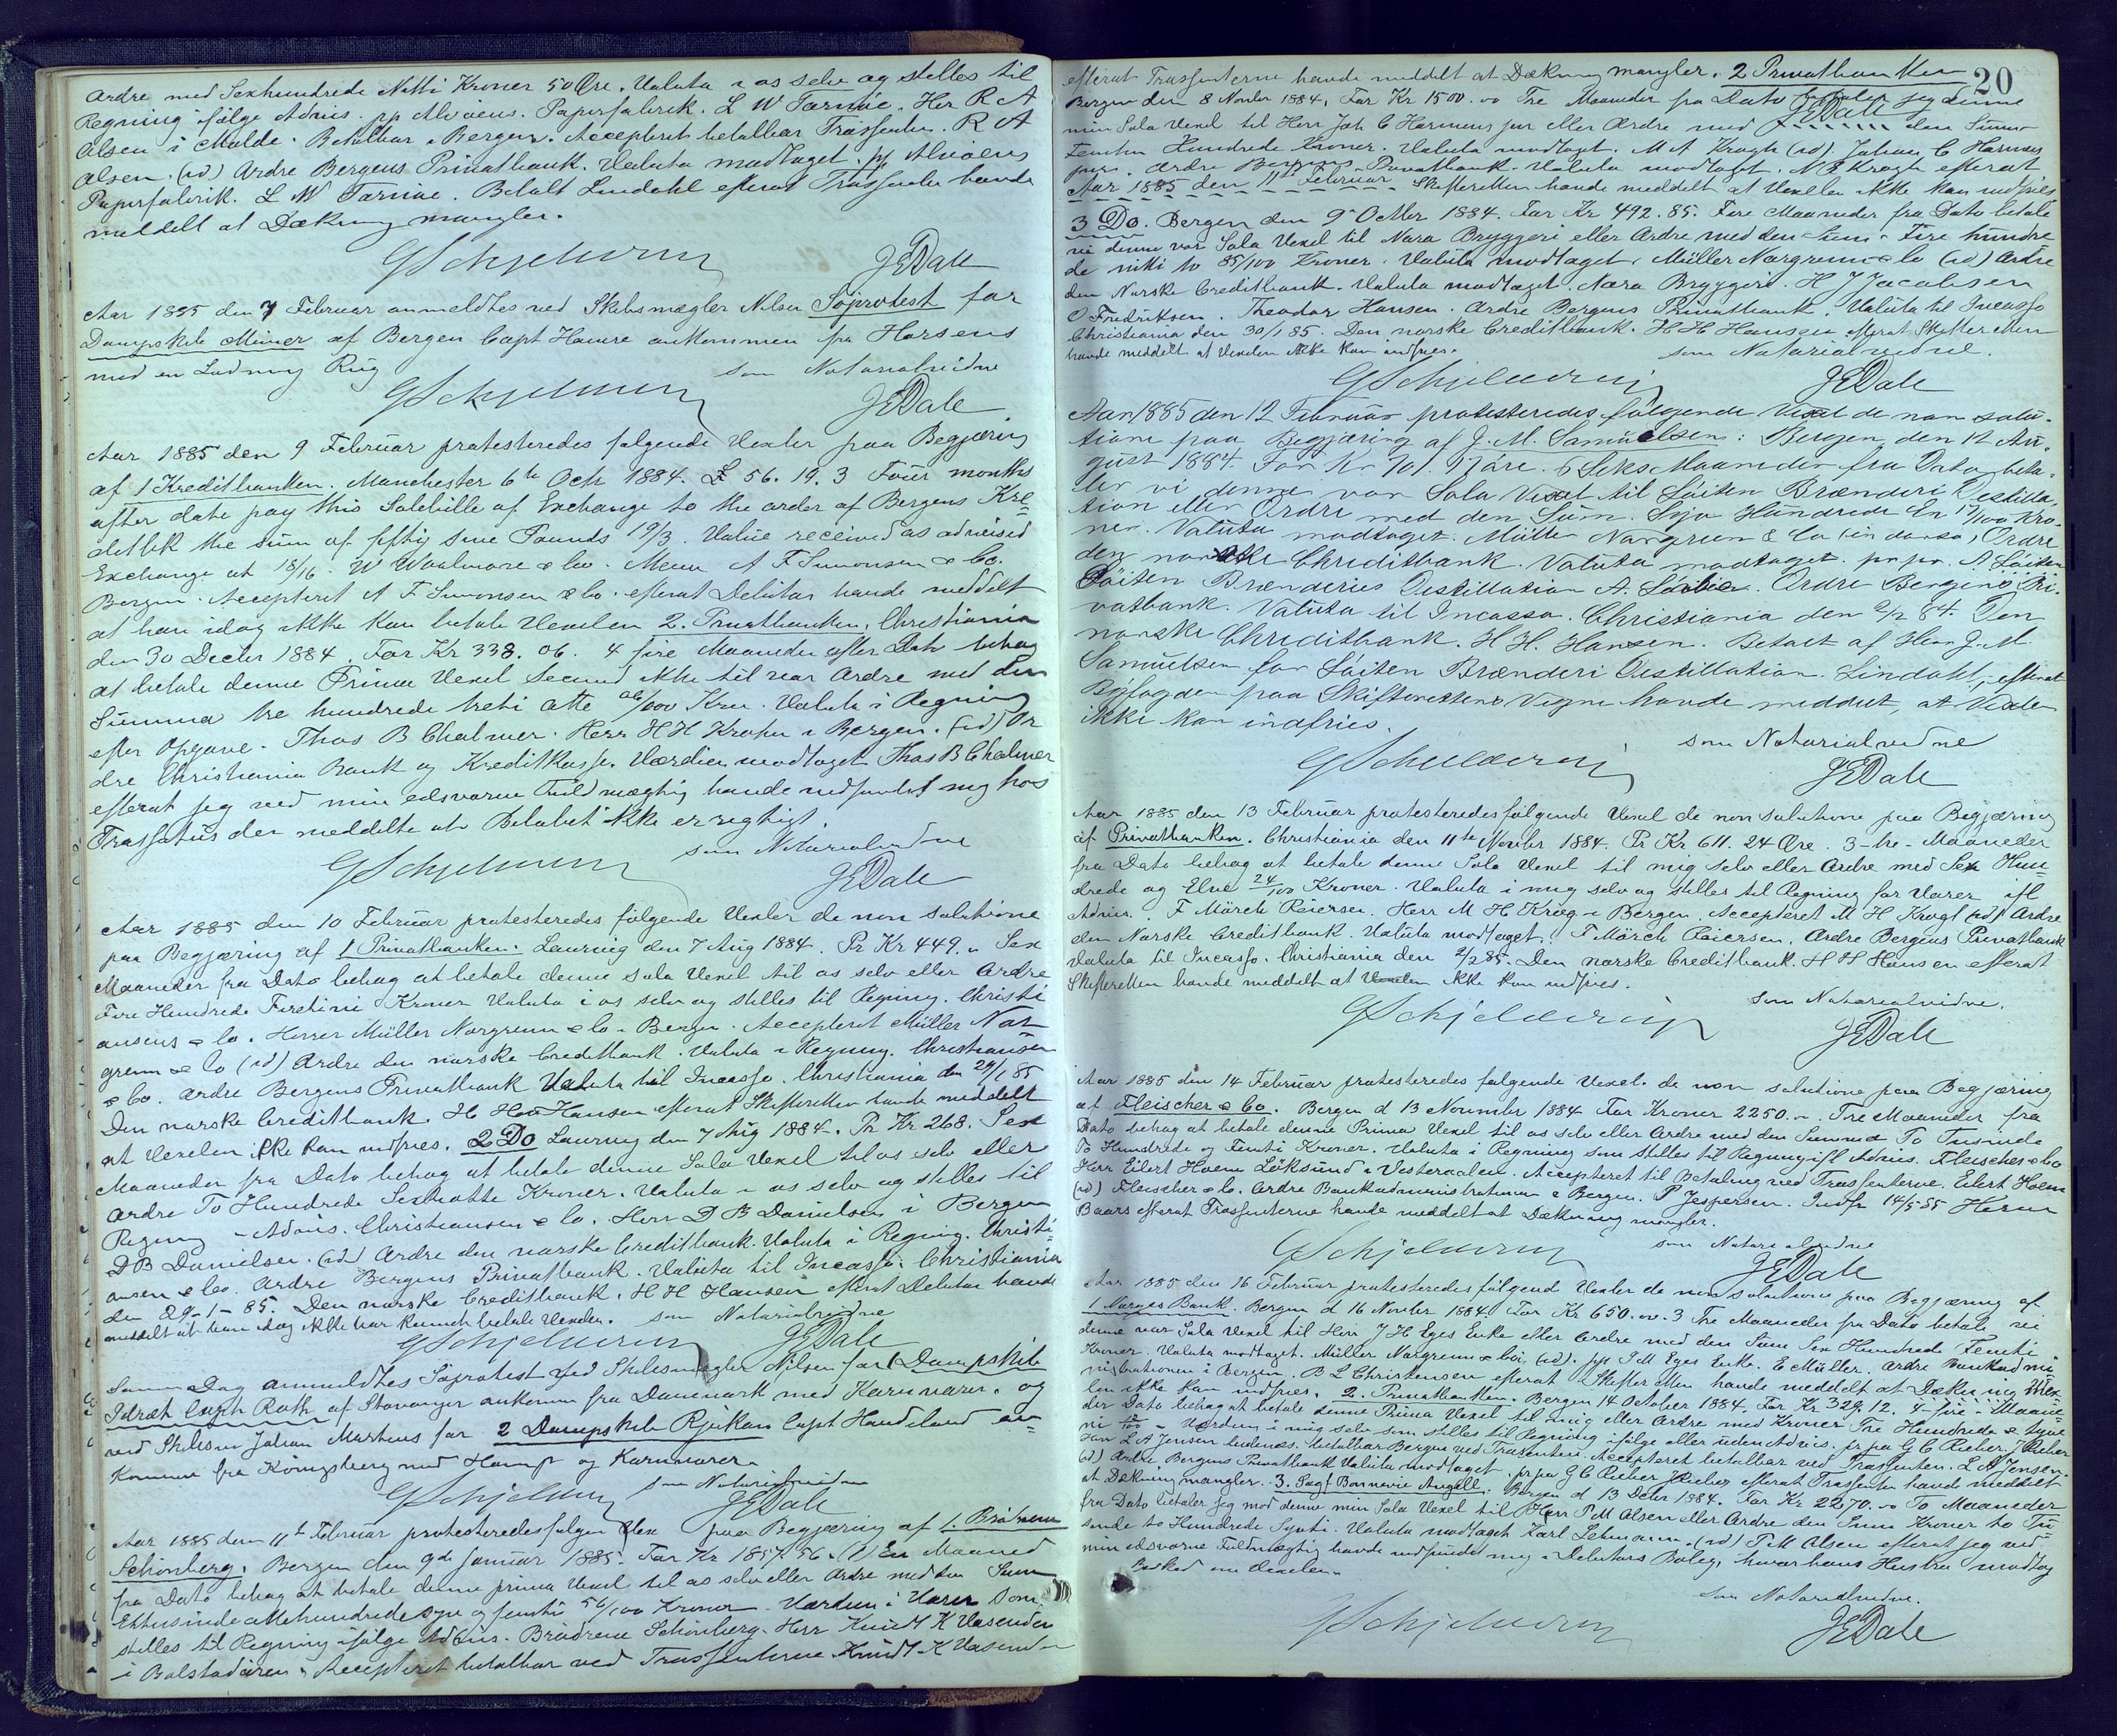 Ordre med Sexhundrede Nitti Kroner 50 Øre. Valuta i os selv og stilles til
Regning ifølge Advis. pp Alvøens Papirfabrik. L W Farnäe. Her R A
Olsen i Molde. Betalbar i Bergen. Accepteret betalbar Trassenten. R A
Olsen. (id) Ordre Bergens Privatbank. Valuta modtaget. pp Alvøens
Papirfabrik. L W Farnäe. Betalt Lindahl efterat Trassenten havde
meddelt at Dækning mangler.
GSchjelderup JEDale
Aar 1885 den 7 Februar anmeldtes ved Skibsmægler Nilsen Søprotest for
Dampskib Mimer af Bergen Capt Hamre ankommen fra Horsens
med en Ladning Rug
som Notarialvidne
GSchjelderup JEDale
Aar 1885 den 9 Februar protesteredes følgende Vexler paa Begjæring
af 1 Kreditbanken. Manchester 6th Octr 1884. £ 56. 19. 3 Four months
after date pay this Solabille of Exchange to the order of Bergens Kre=
ditbk the sum of fifty six Pounds 19/3. Value received as advised
Exchange at 18/16. W Woolmore & Co. Messrs A F Simonsen & Co.
Bergen. Accepteret A F Simonsen & Co. efterat Debitor havde meddelt
at han idag ikke kan betale Vexelen 2. Privatbanken. Christiania
den 30 Decbr 1884. For Kr 338. 06. 4 fire Maaneder efter Dato behag
at betale denne Prima Vexel Secund ikke til vor Ordre med den
Summa tre hundrede treti otte 06/100 Kroner. Valuta i Regning
efter Opgave. Thos B Chalmer. Herr H H Krohn i Bergen. (id) Or
dre Christiania Bank og Kreditkasse. Værdien modtaget Thos B Chalmer
efterat jeg ved min edsvorne Fuldmægtig havde indfundet mig hos
Trassatus der meddelte at Beløbet ikke er rigtigt.
som Notarialvidne
GSchjelderup JEDale
Aar 1885 den 10 Februar protesteredes følgende Vexler de non solutione
paa Begjæring af 1 Privatbanken. Laurvig den 7 Aug 1884. Pr Kr 449. „ Sex
Maaneder fra Dato behag at betale denne sola Vexel til os selv eller Ordre
Fire Hundrede Firetini Kroner Valuta i os selv og stilles til Regning. Christi
ansens & Co. Herrer Müller Norgrenn & Co. Bergen. Accepteret Müller Nor
grenn & Co (id) Ordre den norske Creditbank. Valuta i Regning. Christiansen
& Co. Ordre Bergens Privatbank Valuta til Incasso. Christiania den 29/1 85
Den norske Creditbank. H H Hansen efterat Skifteretten havde meddelt
at Vexelen ikke kan indfries. 2 Do Laurvig den 7 Aug 1884. Pr Kr 268. Sex
Maaneder fra Dato behag at betale denne Sola Vexel til os selv eller
Ordre To Hundrede Sextiotte Kroner. Valuta i os selv og stilles til
Regning - Advis. Christiansen & Co. Herr D B Danielsen i Bergen
D B Danielsen. (id) Ordre den norske Creditbank. Valuta i Regning. Christi=
ansen & Co. Ordre Bergens Privatbank. Valuta til Incasso. Christiania
den 29-1-85. Den norske Creditbank. H H Hansen efterat Debitor havde
meddelt at han idag ikke har kunnet betale Vexelen. som Notarialvidne
GSchjelderup JEDale
Samme Dag anmeldtes Søprotest ved Skibsmægler Nilsen for 1 Dampskib
Idræt Capt Roth af Stavanger ankommen fra Danmark med Kornvarer. og
ved Skibsm Johan Martens for 2 Dampskib Rjukan Capt Handeland an=
kommen fra Königsberg med Hamp og Kornvarer.
som Notarialvidne
GSchjelderup JEDale
Aar 1885 den 11te Februar protesteredes følgen Vex paa Begjæring af 1. Brødrene
Schönberg. Bergen den 9de Januar 1885. For Kr 1857. 56. (1) En Maaned
fra Dato behag at betale denne prima Vexel til os selv eller Ordre med den Sum
Ettusinde ottehundrede syv og femti 56/100 Kroner. Værdien i Varer som
stilles til Regning ifølge Advis. Brødrene Schönberg. Herr Knudt K Vasenden
i Bolstadøren. Accepteret betalbar ved Trassenterne Knudt K Vasend-
20
efterat Trassenterne havde meddelt at Dækning mangler. 2 Privatbanken
Bergen den 8 Novbr 1884. For Kr 1500. 00 Tre Maaneder fra Dato betaler jeg denne
JEDale
min Sola Vexel til Herr Joh C Harmens jur eller Ordre med den Summa
Femten Hundrede Kroner. Valuta modtaget. M A Krogh (id). Johan C Harmens
jur. Ordre Bergens Privatbank. Valuta modtaget. M A Krogh efterat
Aar 1885 den 11te Februar. Skifteretten havde meddelt at Vexelen ikke kan indfries
3 Do. Bergen den 9de Octbr 1884. For Kr 492. 85. Fire Maaneder fra Dato betale
vi denne vor Sola Vexel til Nora Bryggeri eller Ordre med den Sum - Fire hundre
de nitti to 85/100 Kroner. Valuta modtaget. Müller Norgrenn & Co (id) Ordre
den Norske Creditbank. Valuta modtaget. Nora Bryggeri. H J Jacobsen
O Fredriksen. Theodor Hansen. Ordre Bergens Privatbank. Valuta til Incasso
Christiania den 30/1 85. Den norske Creditbank. H H Hansen efterat Skifteretten
havde meddelt at Vexelen ikke kan indfries.
som Notarialvidne.
GSchjelderup JEDale
Aar 1885 den 12 Februar protesteredes følgende Vexel de non solu-
tione paa Begjæring af J. M. Samuelsen: Bergen den 12 Au-
gust 1884. For Kr 701. 17 øre. 6 Seks Maaneder fra Dato beta-
ler vi denne vor Sola Vexel til Løiten Brænderi Destilla-
tion eller Ordre med den Sum. Syv Hundrede En 17/100 Kro-
ner. Valuta modtaget. Müller Norgrenn & Co (in dorso) Ordre
den norske Chreditbank. Valuta modtaget. pr. pr. A. Løiten
Løiten Brænderies Destillation A. Løiten. Ordre Bergens Pri-
vatbank. Valuta til Incasso. Christiania den 2/2 84. Den
norske Chreditbank. H. H. Hansen. Betalt af Herr J. M
Samuelsen for Løiten Brænderi Destillation. Lindahl, efterat
Byfogden paa Skifterettens Vegne havde meddelt, at Vexlen
ikke kan indfries.
som Notarialvidne
GSchjelderup JEDale
Aar 1885 den 13 Februar protesteredes følgende Vexel de non solutione paa Begjæring
af Privatbanken. Christiania den 11te Novbr 1884. Pr Kr 611. 24 Øre. 3 - tre - Maaneder
fra Dato behag at betale denne Sola Vexel til mig selv eller Ordre med Sex Hun=
drede og Elve 24/100 Kroner. Valuta i mig selv og stilles til Regning for Varer ifl
Advis. F Mörch Reiersen. Herr M H Krag i Bergen. Accepteret M H Krag (id) Ordre
den Norske Creditbank. Valuta modtaget. F Mörch Reiersen. Ordre Bergens Privatbank
Valuta til Incasso. Christiania den 2/2 85. Den norske Creditbank. H H Hansen efterat
Skifteretten havde meddelt at Vexelen ikke kan indfries.
som Notarialvidne.
GSchjelderup JEDale
Aar 1885 den 14 Februar protesteredes følgende Vexel de non solutione paa Begjæring
af Fleischer & Co. Bergen d 13 November 1884 For Kroner 2250. „. Tre Maaneder fra
Dato behag at betale denne Prima Vexel til os selv eller Ordre med den Summa To Tusinde
To Hundrede og Femti Kroner. Valuta i Regning som stilles til Regning ifl Advis. Fleischer & Co
Herr Eilert Hoem Löksund i Vesteraalen. Accepteret til Betaling ved Trassenterne. Eilert Hoem
(id) Fleischer & Co. Ordre Bankadministrationen i Bergen. P Jespersen. Indfr 14/5-85 Herm
Baars efterat Trassenterne havde meddelt at Dækning mangler.
som Notarialvidne
GSchjelderup JEDale
Aar 1885 den 16 Februar protesteredes følgend Vexler de non solutione paa Begjæring af
1 Norges Bank. Bergen d 16 Novbr 1884. For Kr 650. 00. 3 Tre Maaneder fra Dato betale vi
denne vor Sola Vexel til Herr J H Eges Enke eller Ordre med den Sum Sex Hundrede Femti
Kroner. Valuta modtaget. Müller Norgrenn & Co. (id). pp J M Eges Enke. E Müller. Ordre Bankadmi
nistrationen i Bergen. B L Christensen efterat Skifteretten havde meddelt at Dækning Vexe
len ikke kan indfries. 2. Privatbanken. Bergen 14 October 1884. For Kr 329. 12. 4 - fire - Maane
der Dato behag at betale denne Prima Vexel til mig eller Ordre med Kroner Tre Hundrede & tyve
ni 12/100 - Værdien i mig selv som stilles til Regning ifølge eller uden Advis. pr pa G C Rieber. J Rieber
Herr L A Jensen Indenæs. betalbar Bergen ved Trassenten. Accepteret betalbar ved Trassenten. L A Jensen.
(id) Ordre Bergens Privatbank Valuta modtaget. pr pa G C Rieber JRieber efterat Trassenten havde meddelt
at Dækning mangler. 3. Sagf Bonnevie Angell. Bergen d 13 Decbr 1884. For Kr 2270. 00 To Maaneder
fra Dato betaler jeg mod denne min Sola Vexel til Herr P M Olsen eller Ordre den Sum Kroner to Tu
sinde to Hundrede Sytti. Valuta modtaget Karl Lehmann. (id) P M Olsen efterat jeg ved
min edsvorne Fuldmægtig havde indfundet mig i Debitors Bolig, hvor hans Hustru modtog
Besked om Vexelen.
som Notarialvidne.
GSchjelderup JEDale